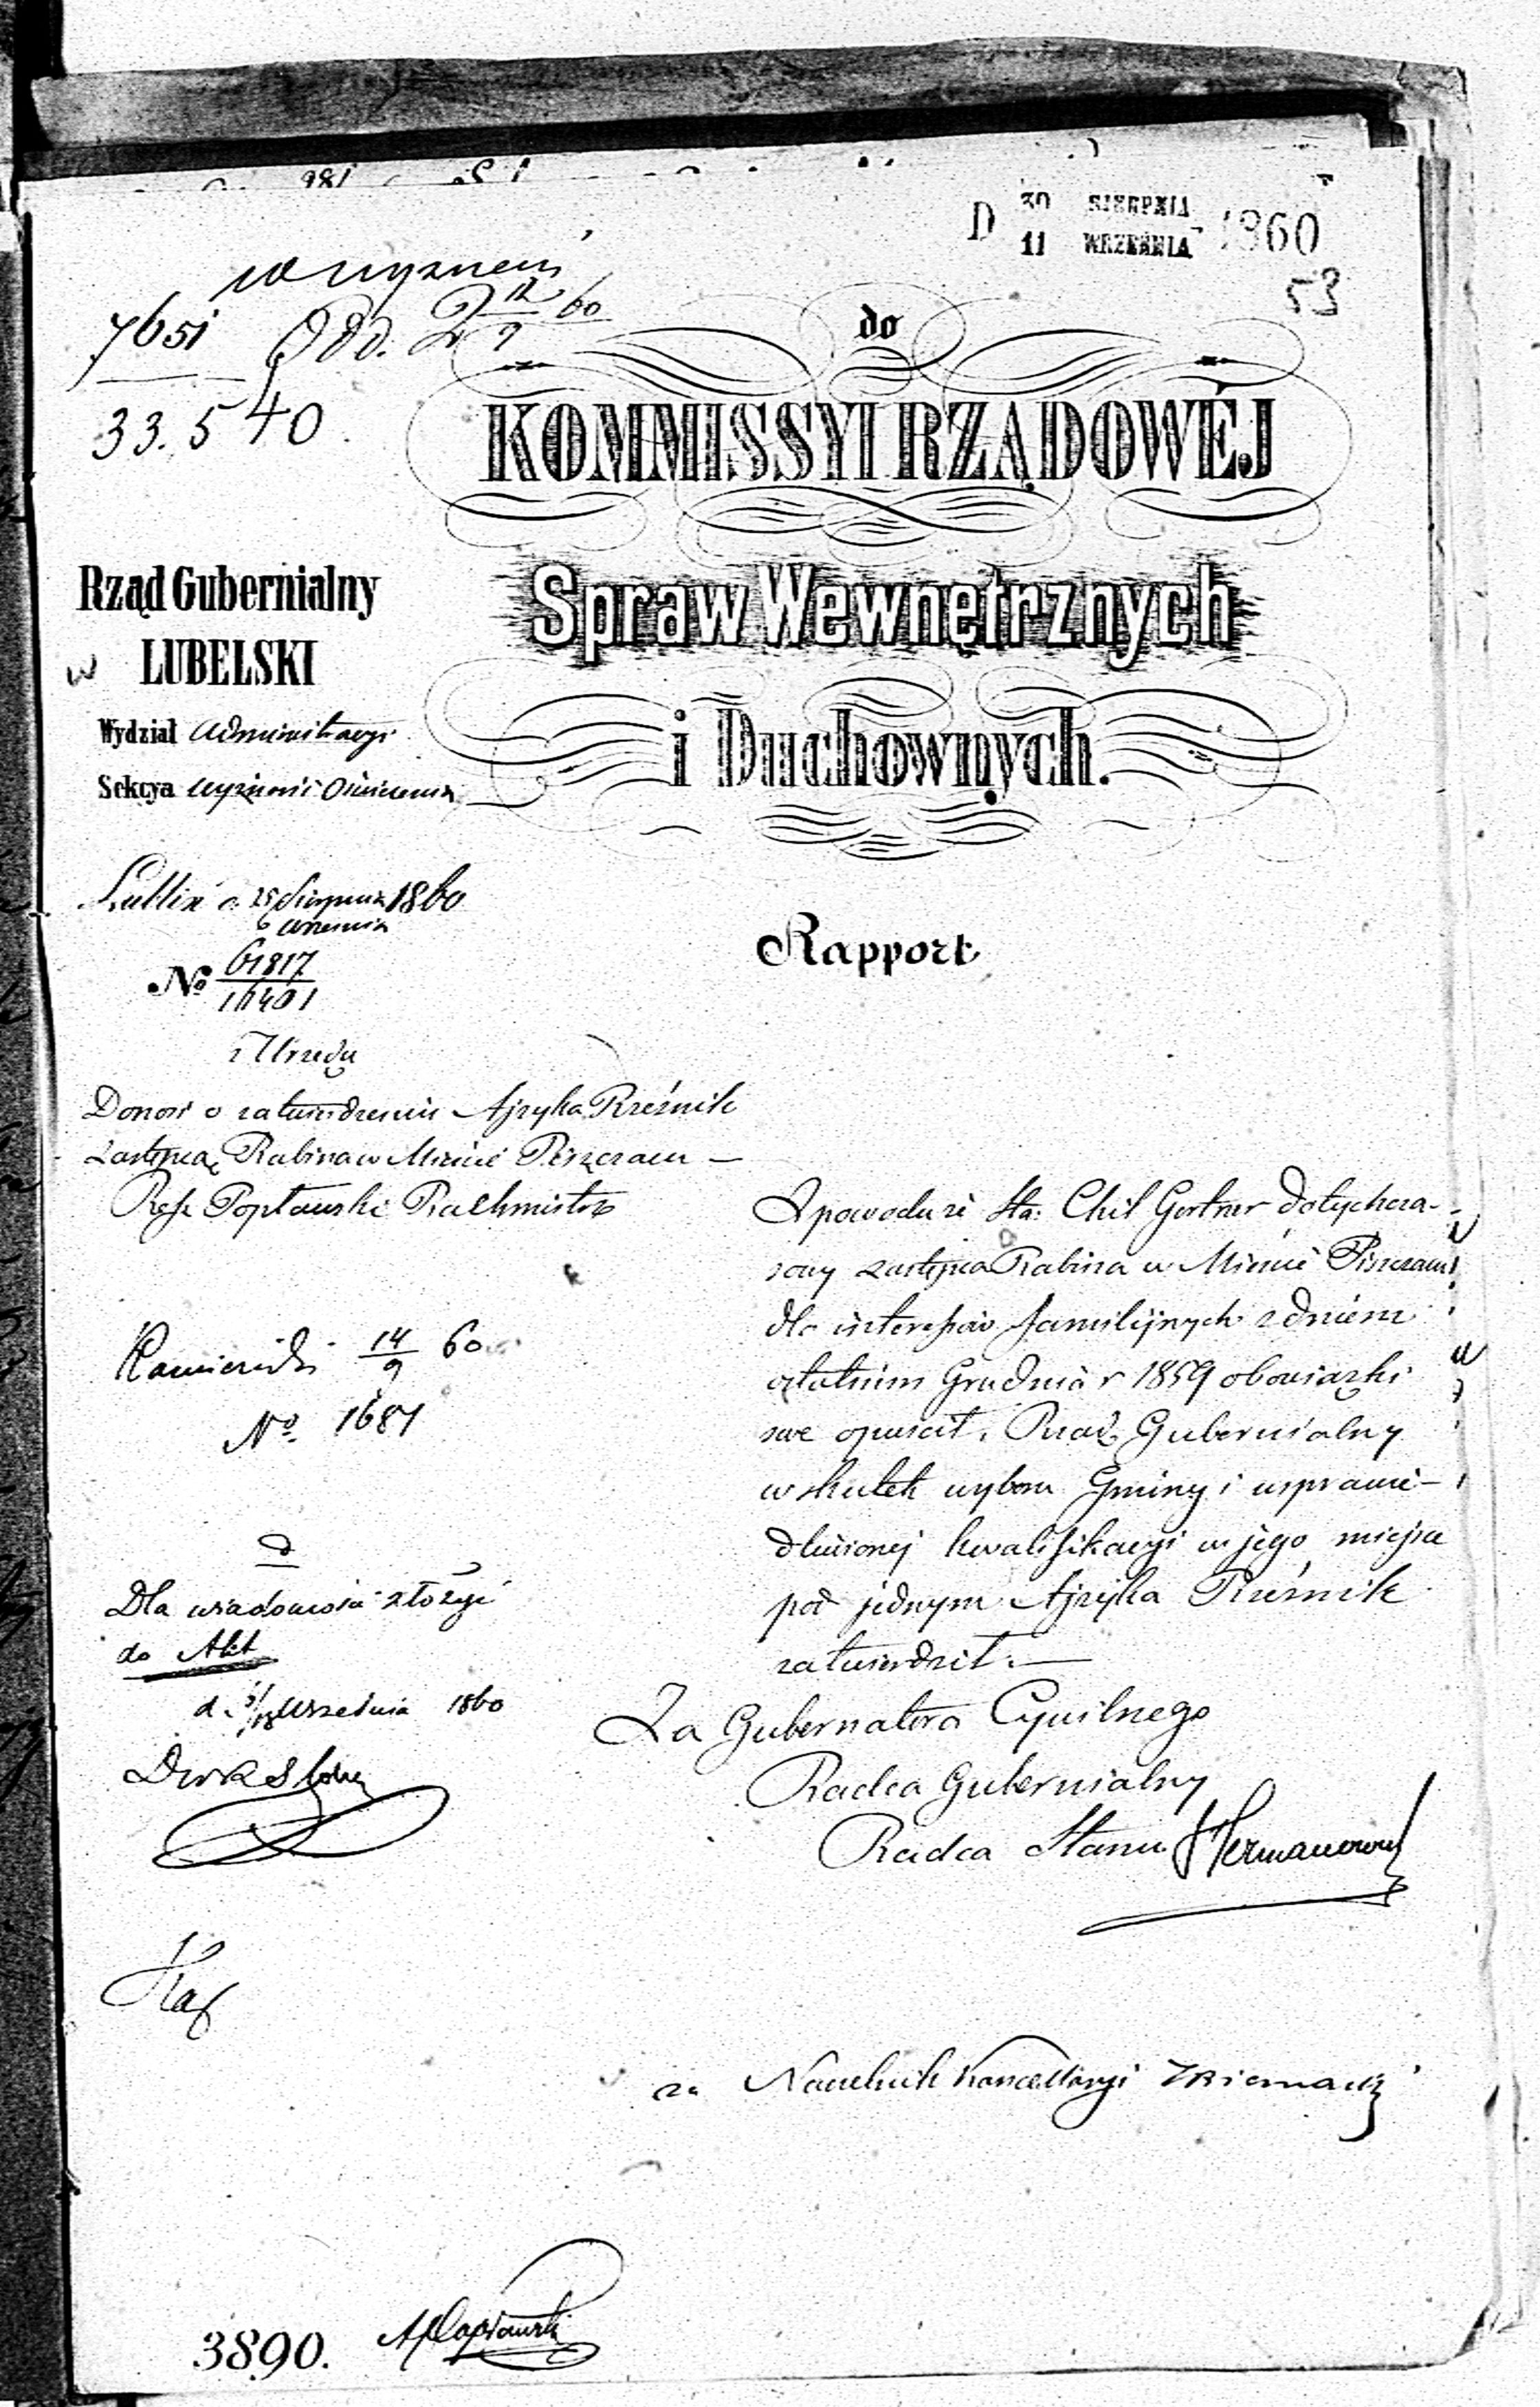 D 30 SIERPNIA 1860
11 WRZEŚNIA
53
wyznań
7651 Odd. 2 12/9 60
33.540
do
KOMMISSYI RZĄDOWÉJ
Spraw Wewnętrznych
i Duchownych.
Rząd Gubernialny
LUBELSKI
Wydział Administracyi
Sekcya Wyznań i Oświecenia
Lublin d. 25 Sierpnia 1860
6 Września
№ 61817
16401
z Urzędu
Donosi o zatwierdzeniu Ajzyka Rzeźnik
zastępcą Rabina w Mieście Piszczacu —
Refr Popławski Rachmistrz
Rapport
Z powodu że Sta: Chil Gertner dotychcza-
sowy zastępca Rabina w Mieście Piszczacu
dla interesów familijnych z dniem
ostatnim Grudnia r 1859 obowiązki
swe opuścił, Rząd Gubernialny
w skutek wyboru Gminy i usprawie-
dliwionej kwalifikacyi w jego miejsce
pod jednym Ajzyka Rzeźnik
zatwierdził.—
Za Gubernatora Cywilnego
Radca Gubernialny
Radca Stanu
14/9 60
No. 1681
d
Dla wiadomości złożyć
do Akt
d. Września 1860
za Naczelnik Kancellaryi
3890.